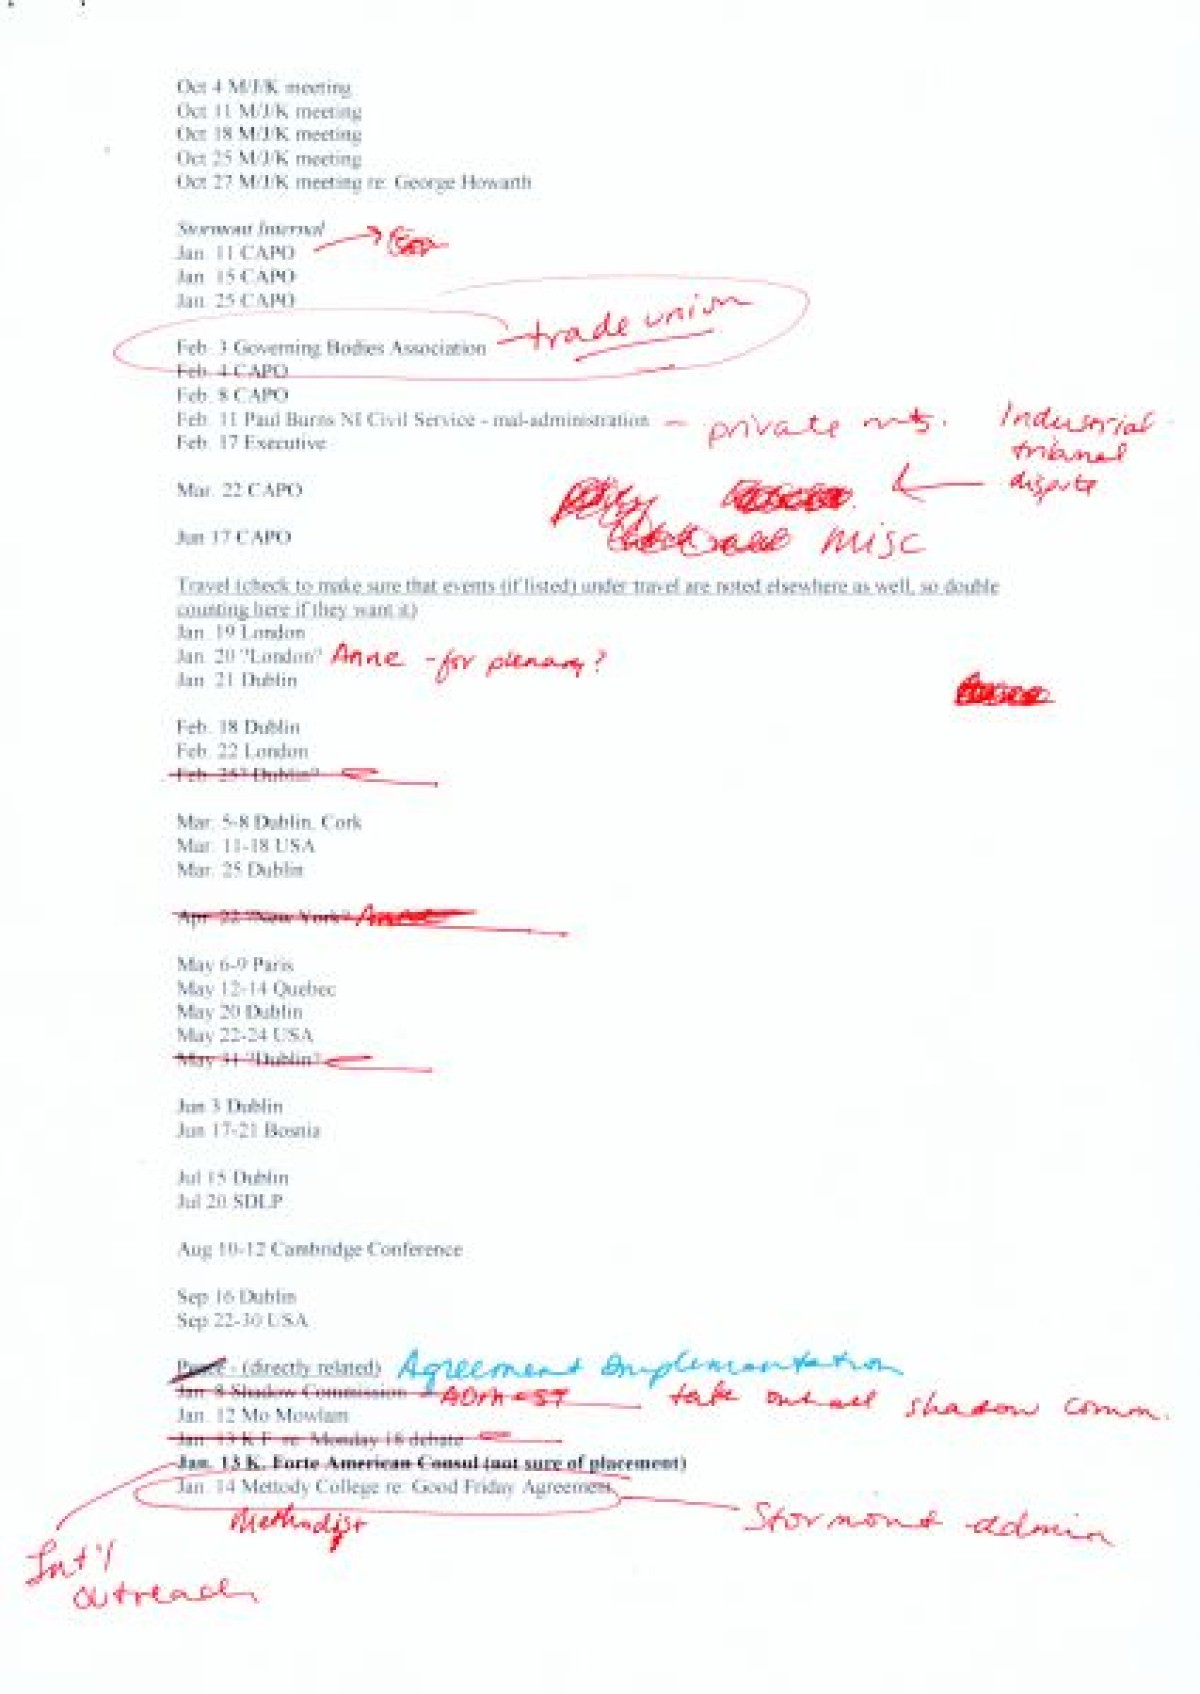 Oct 4 M/J/K meeting
Oct 11 M/J/K meeting
Oct 18 M/J/K meeting
Oct 25 M/J/K meeting
Oct 27 M/J/K meeting re: George Howarth
Stormont Internal
Jan. 11 CAPO
Jan. 15 CAPO
Jan. 25 CAPO
trade union
Feb. 3 Governing Bodies Association
Feb. 4 CAPO
Feb. 8 CAPO
Feb. 11 Paul Burns NI Civil Service - mal-administration - private mts. Industrial
tribunal
dispute
Feb. 17 Executive
Mar. 22 CAPO
misc
Jun 17 CAPO
Travel (check to make sure that events (if listed) under travel are noted elsewhere as well, so double
counting here if they want it)
Jan. 19 London
Jan. 20 ?London? Anne - for plenary?
Jan. 21 Dublin
Feb. 18 Dublin
Feb. 22 London
Feb. 25? Dublin?
Mar. 5-8 Dublin, Cork
Mar. 11-18 USA
Mar. 25 Dublin
Apr. 22 ?New York?
May 6-9 Paris
May 12-14 Quebec
May 20 Dublin
May 22-24 USA
May 31 ?Dublin?
Jun 3 Dublin
Jun 17-21 Bosnia
Jul 15 Dublin
Jul 20 SDLP
Aug 10-12 Cambridge Conference
Sep 16 Dublin
Sep 22-30 USA
Peace - (directly related) Agreement Implementation
Jan. 8 Shadow Commission take out all shadow comm.
Jan. 12 Mo Mowlam
Jan. 13 K.F. re: Monday 18 debate
Jan. 13 K. Forte American Consul (not sure of placement)
Jan. 14 Mettody College re: Good Friday Agreement
Methodist
Stormont admin
Int'l
outreach